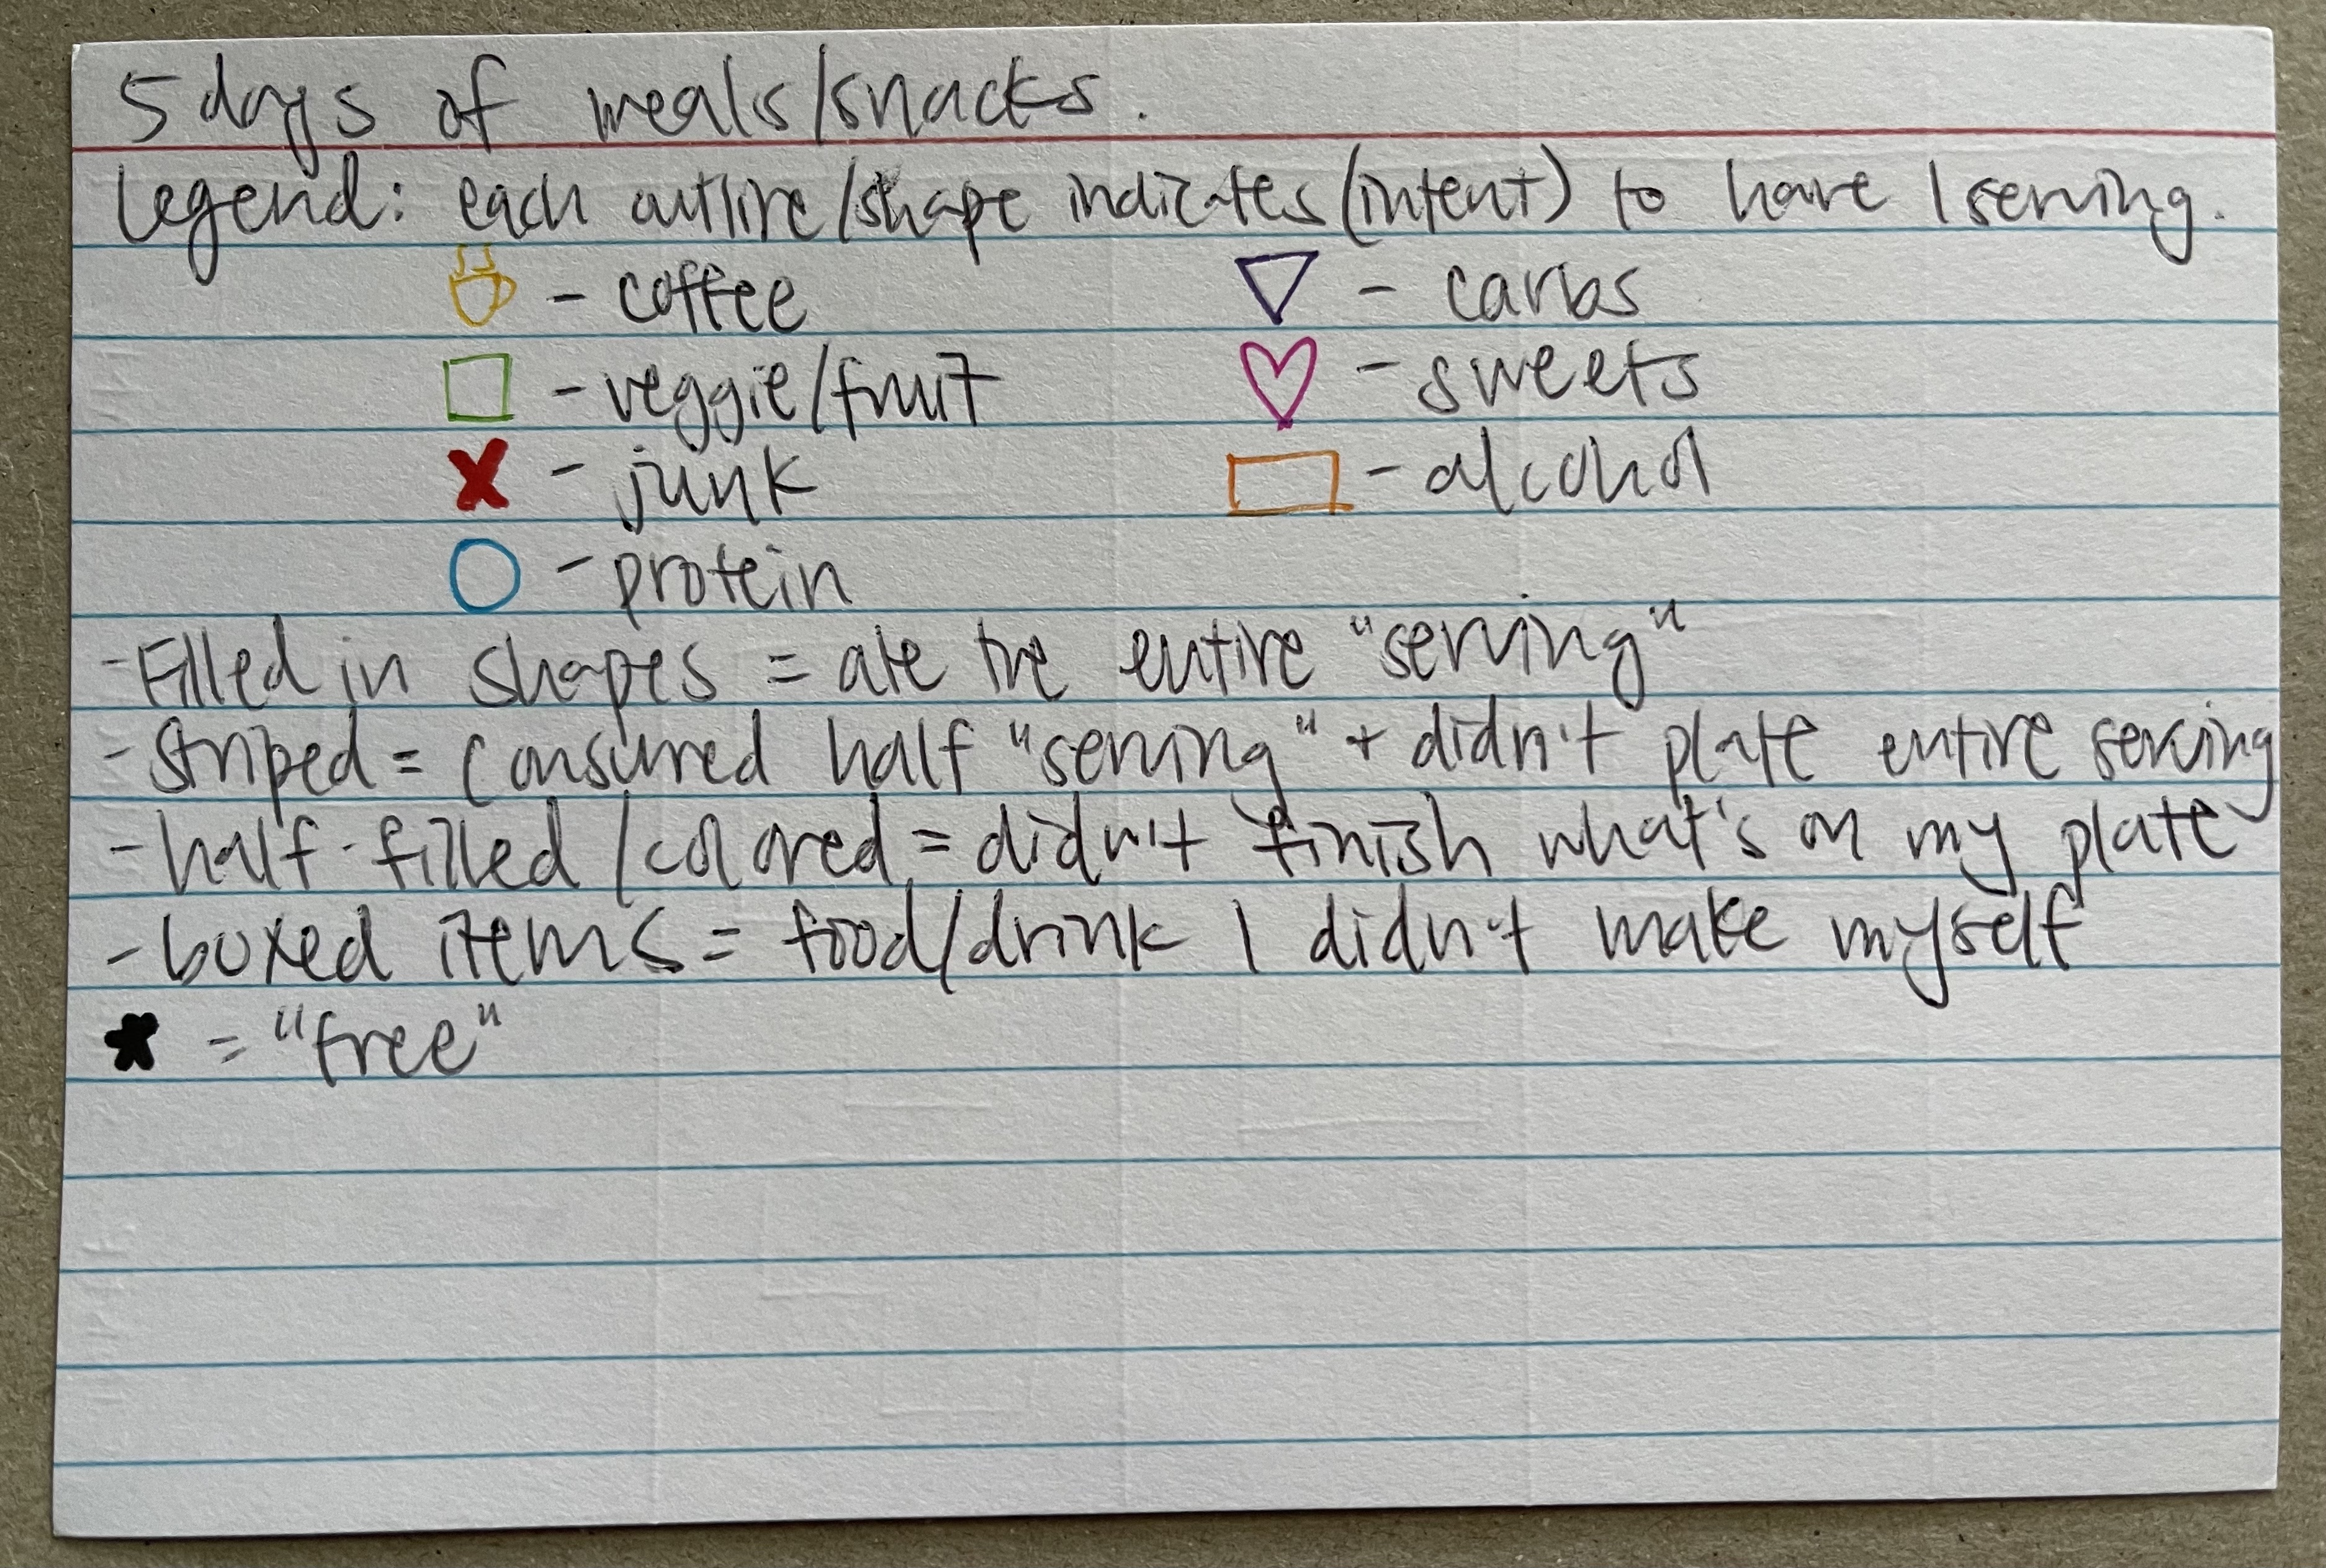 5 days of meals/snacks.
Legend: each outline/shape indicates (intent) to have 1 serving.
- coffee - carbs
- veggie/fruit - sweets
- junk - alcohol
- protein
- Filled in shapes = ate the entire "serving"
- striped = consumed half "serving" + didn't plate entire serving
- half-filled/colored = didn't finish what's on my plate
- boxed items = food/drink I didn't make myself
= "free"